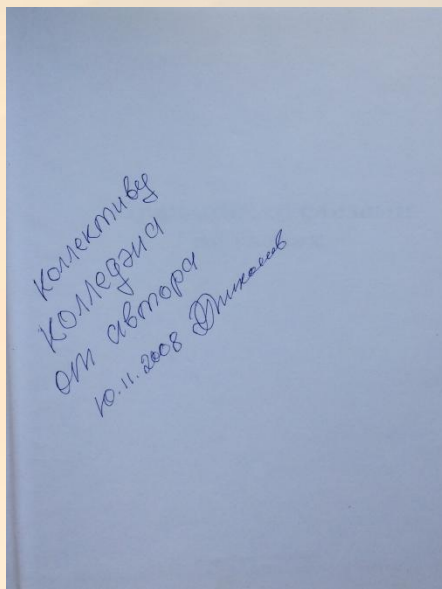 коллективу
колледжа
от автора
10.11.2008